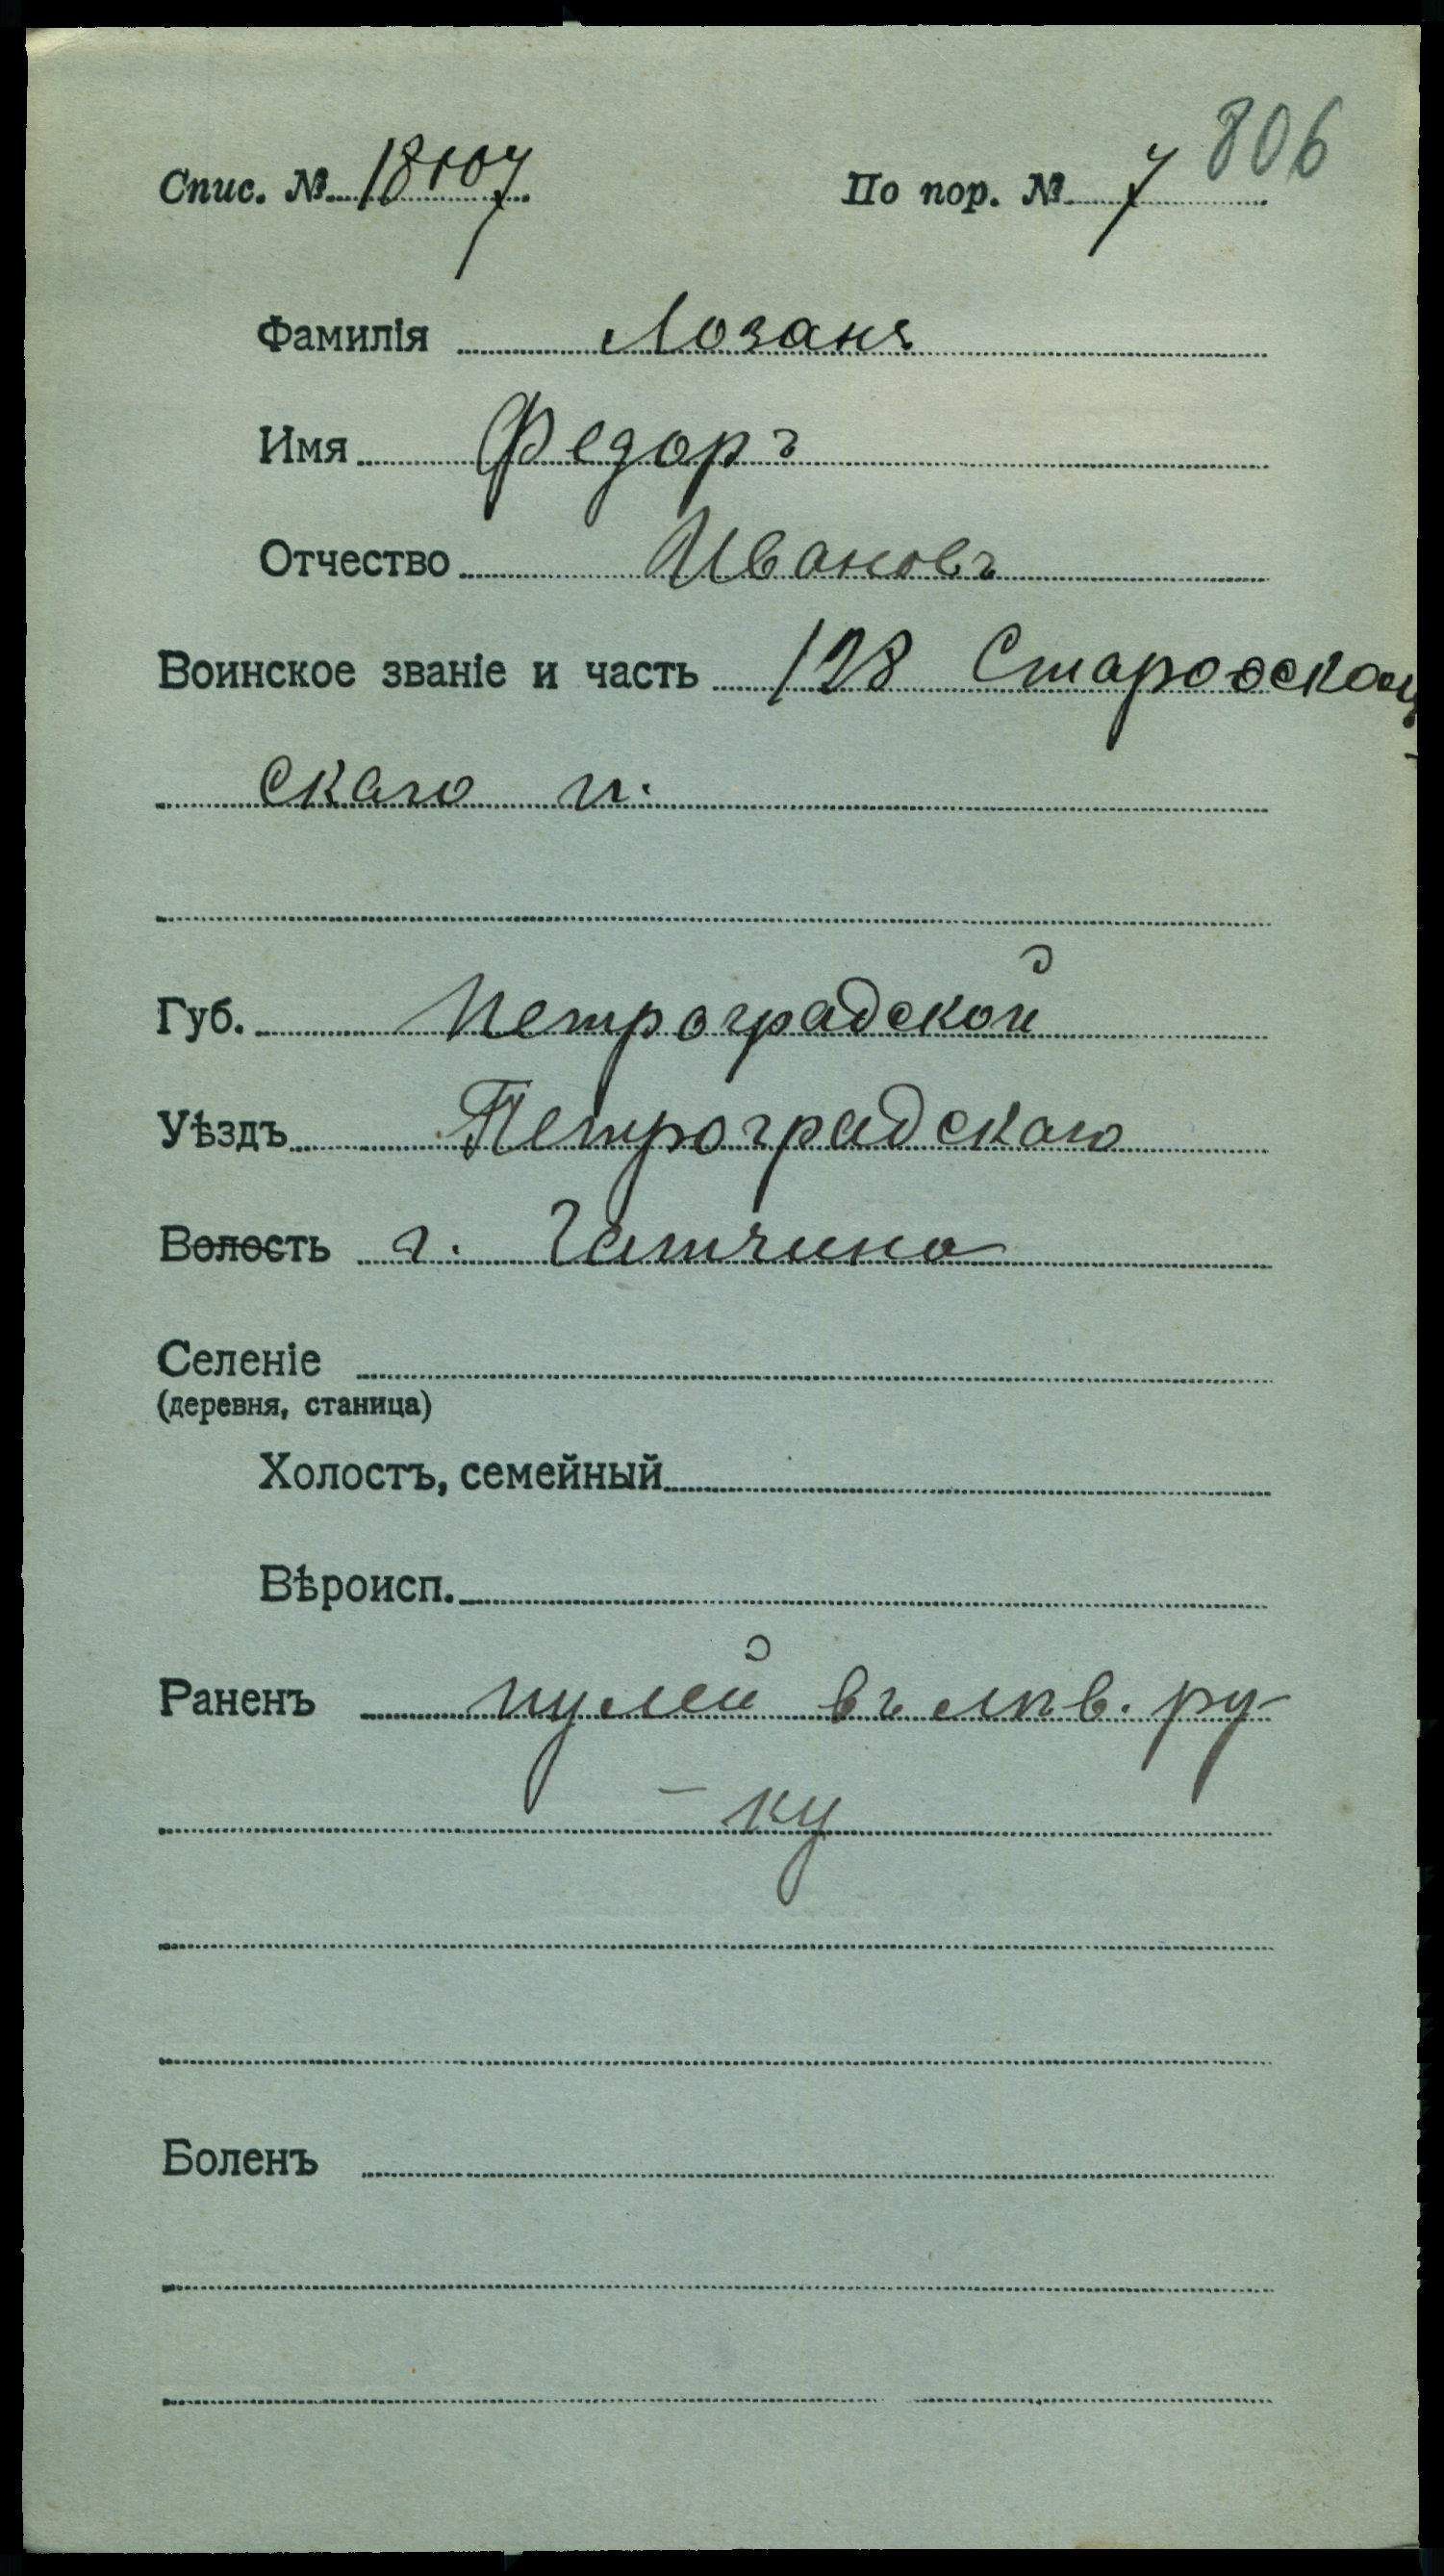 806
Спис. № 18107 По пор. № 7
Фамилія Лозанъ
Имя Федоръ
Отчество Ивановъ
Воинское званіе и часть 128
скаго п.
Губ. Петроградской
Уѣздъ Петроградскаго
Волость г. Гатчина
Селеніе
(деревня, станица)
Холостъ, семейный
Вѣроисп.
Раненъ пулей въ лѣв. ру-
-ку
Боленъ